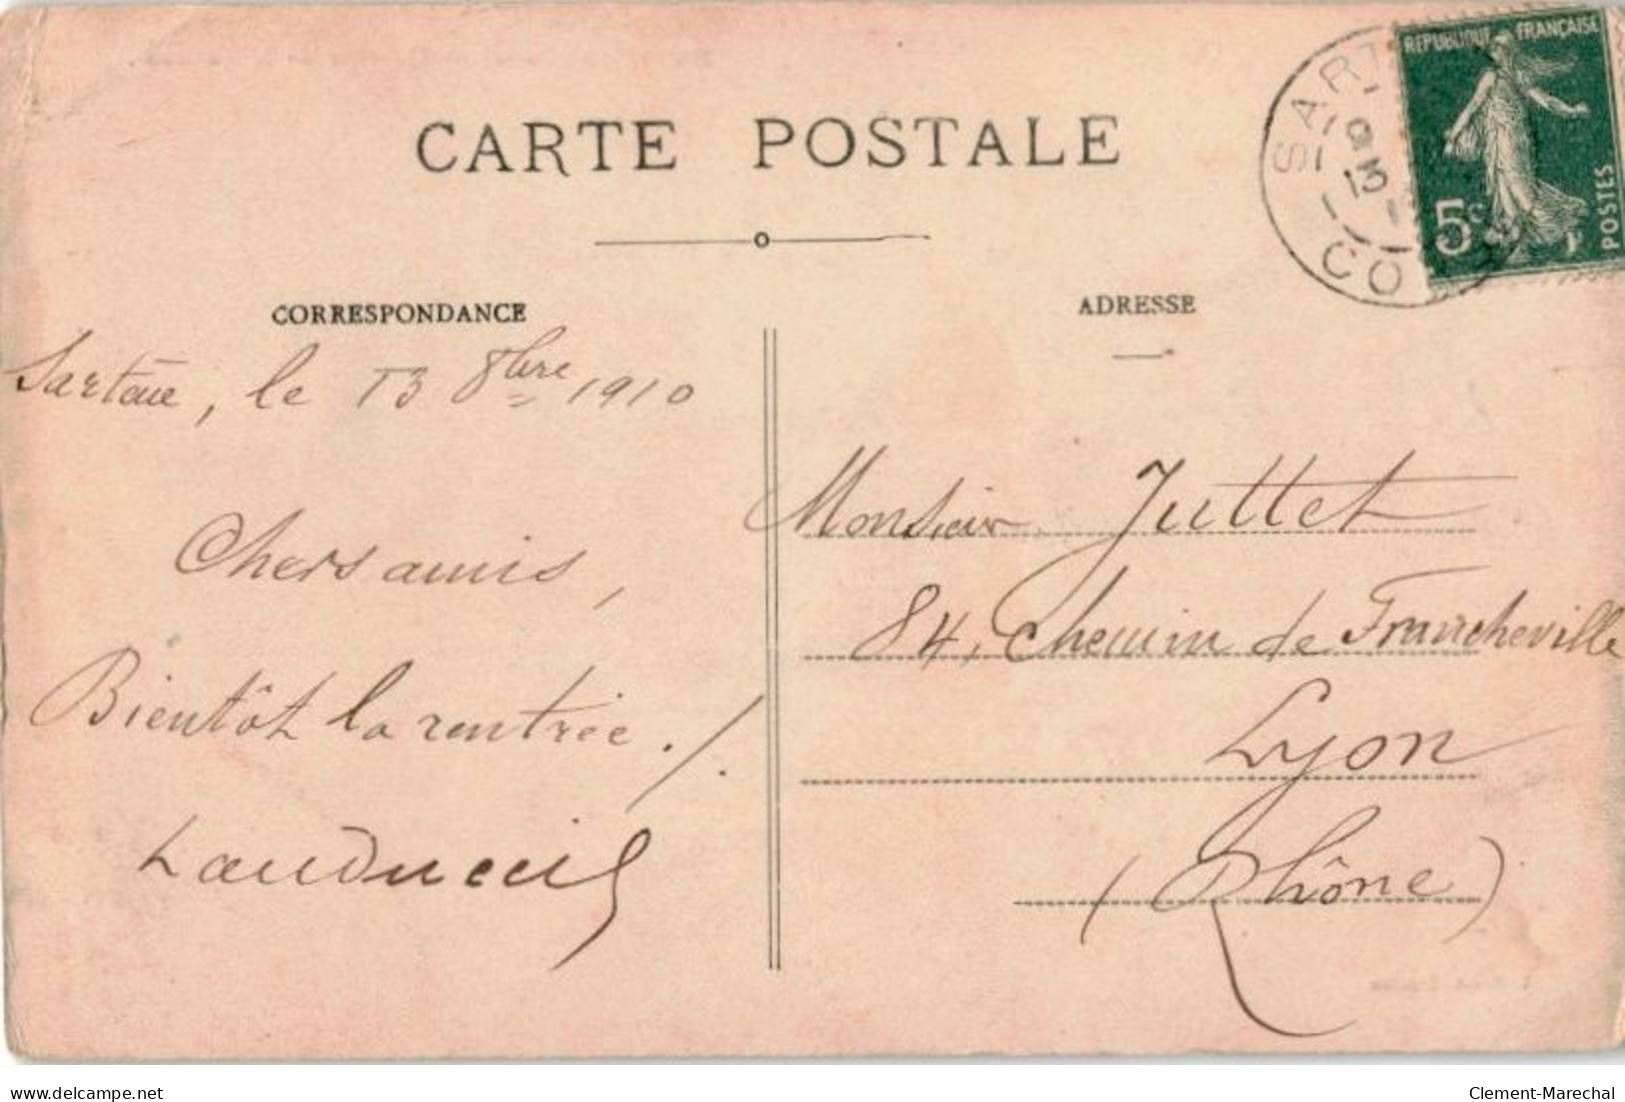 CARTE POSTALE
RÉPUBLIQUE FRANÇAISE
5c
POSTES
SART
13
CO
CORRESPONDANCE
ADRESSE
Sartène, le 13 8bre 1910
Chers amis,
Bientôt la rentrée./.
Monsieur Juttet
84, Chemin de Francheville
Lyon
(Rhône)
delcampe.net
Clement-Marechal